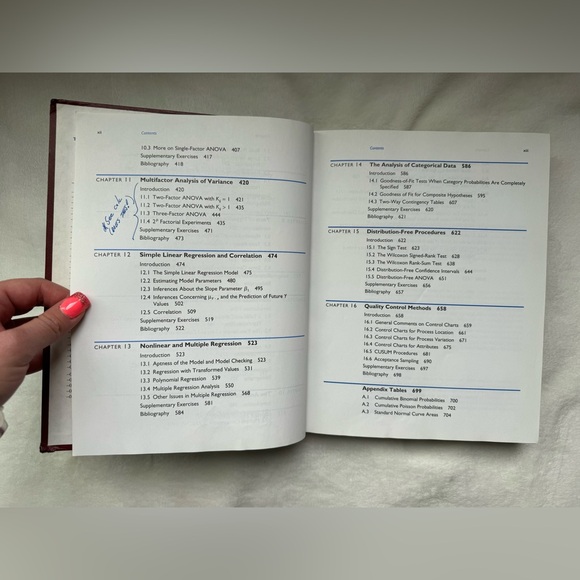 xii
Contents
10.3 More on Single-Factor ANOVA 407
Supplementary Exercises 417
Bibliography 418
CHAPTER 11 Multifactor Analysis of Variance 420
Introduction 420
11.1 Two-Factor ANOVA with Kij = 1 421
11.2 Two-Factor ANOVA with Kij > 1 435
11.3 Three-Factor ANOVA 444
11.4 2ᵖ Factorial Experiments 435
Supplementary Exercises 471
Bibliography 473
CHAPTER 12 Simple Linear Regression and Correlation 474
Introduction 474
12.1 The Simple Linear Regression Model 475
12.2 Estimating Model Parameters 480
12.3 Inferences About the Slope Parameter β₁ 495
12.4 Inferences Concerning and the Prediction of Future Y
Values 502
12.5 Correlation 509
Supplementary Exercises 519
Bibliography 522
CHAPTER 13 Nonlinear and Multiple Regression 523
Introduction 523
13.1 Aptness of the Model and Model Checking 523
13.2 Regression with Transformed Values 531
13.3 Polynomial Regression 539
13.4 Multiple Regression Analysis 550
13.5 Other Issues in Multiple Regression 568
Supplementary Exercises 581
Bibliography 584
Contents
xiii
CHAPTER 14 The Analysis of Categorical Data 586
Introduction 586
14.1 Goodness-of-Fit Tests When Category Probabilities Are Completely
Specified 587
14.2 Goodness of Fit for Composite Hypotheses 595
14.3 Two-Way Contingency Tables 607
Supplementary Exercises 620
Bibliography 621
CHAPTER 15 Distribution-Free Procedures 622
Introduction 622
15.1 The Sign Test 623
15.2 The Wilcoxon Signed-Rank Test 628
15.3 The Wilcoxon Rank-Sum Test 638
15.4 Distribution-Free Confidence Intervals 644
15.5 Distribution-Free ANOVA 651
Supplementary Exercises 656
Bibliography 657
CHAPTER 16 Quality Control Methods 658
Introduction 658
16.1 General Comments on Control Charts 659
16.2 Control Charts for Process Location 661
16.3 Control Charts for Process Variation 671
16.4 Control Charts for Attributes 675
16.5 CUSUM Procedures 681
16.6 Acceptance Sampling 690
Supplementary Exercises 697
Bibliography 698
Appendix Tables 699
A.1 Cumulative Binomial Probabilities 700
A.2 Cumulative Poisson Probabilities 702
A.3 Standard Normal Curve Areas 704